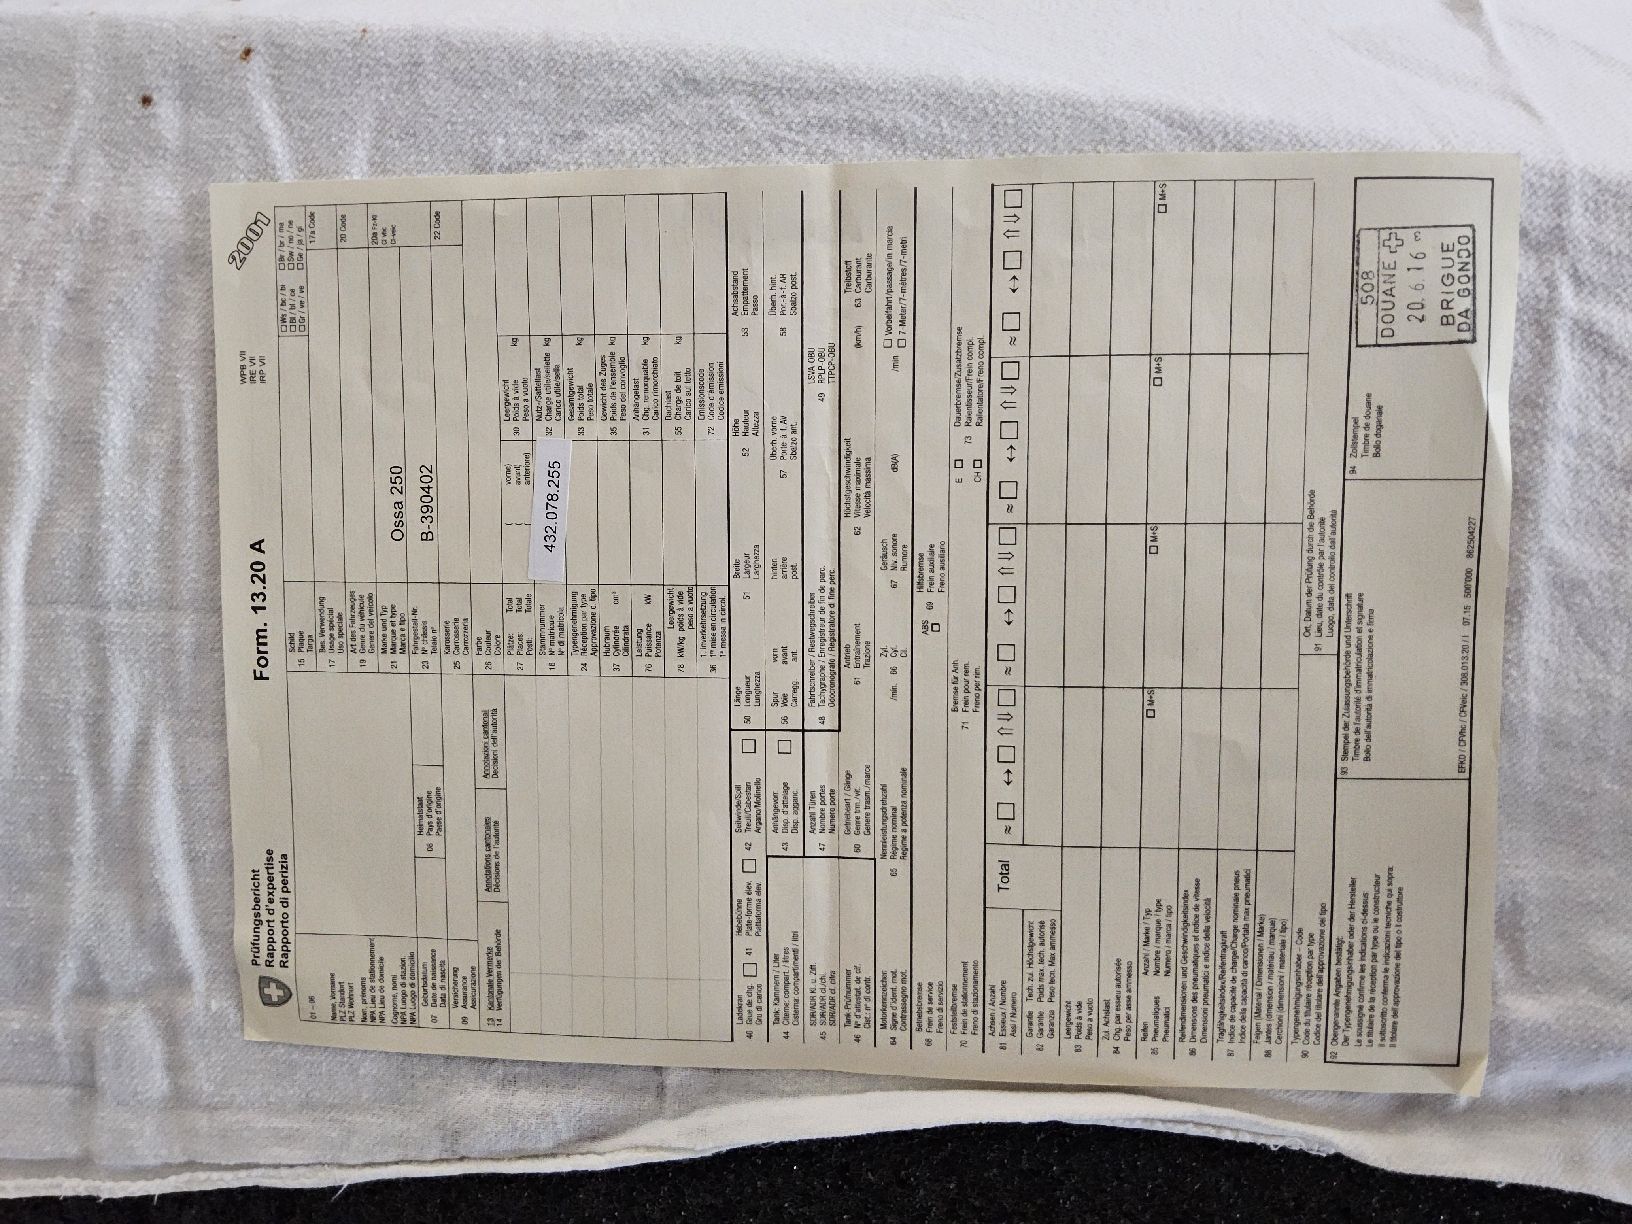 Prüfungsbericht
Rapport d'expertise
Rapporto di perizia
Form. 13.20 A
WPB VII
IRE VII
IRP VII
2007
01 – 06
Name, Vorname
PLZ Standort
PLZ Wohnort
Nom, prénoms
NPA Lieu de stationnement
NPA Lieu de domicile
Cognome, nomi
NPA Luogo di stazion.
NPA Luogo di domicilio
07 Geburtsdatum
Date de naissance
Data di nascita
06 Heimatstaat
Pays d'origine
Paese d'origine
09 Versicherung
Assurance
Assicurazione
13 Kantonale Vermerke
14 Verfügungen der Behörde
Annotations cantonales
Décisions de l'autorité
Annotazioni cantonali
Decisioni dell'autorità
15 Schild
Plaque
Targa
17 Bes. Verwendung
Usage spécial
Uso speciale
17a Code
19 Art des Fahrzeuges
Genre du véhicule
Genere del veicolo
20 Code
21 Marke und Typ
Marque et type
Marca e tipo
Ossa 250
23 Fahrgestell-Nr.
N° châssis
Telaio n°
B-390402
22 Code
25 Karosserie
Carrosserie
Carrozzeria
26 Farbe
Couleur
Colore
27 Plätze: Total
Places: Total
Posti: Totale
( vorne)
( avant)
( anteriore)
30 Leergewicht kg
Poids à vide
Peso a vuoto
18 Stammnummer
N° matricule
N° di matricola
432.078.255
32 Nutz-/Sattellast kg
Charge utile/sellette
Carico utile/sella
24 Typengenehmigung
Réception par type
Approvazione c. tipo
33 Gesamtgewicht kg
Poids total
Peso totale
37 Hubraum cm³
Cylindrée
Cilindrata
35 Gewicht des Zuges kg
Poids de l'ensemble
Peso del convoglio
76 Leistung kW
Puissance
Potenza
31 Anhängelast kg
Chg. remorquable
Carico rimorchiato
78 kW/kg Leergewicht
poids à vide
peso a vuoto
55 Dachlast kg
Charge de toit
Carico sul tetto
36 1. Inverkehrsetzung
1re mise en circulation
1a messa in circol.
72 Emissionscode
Code d'émission
Codice emissioni
40 Ladekran
Grue de chg.
Gru di carico
41 Hebebühne
Plate-forme élév.
Piattaforma elev.
42 Seilwinde/Spill
Treuil/Cabestan
Argano/Molinello
50 Länge
Longueur
Lunghezza
51 Breite
Largeur
Larghezza
52 Höhe
Hauteur
Altezza
53 Achsabstand
Empattement
Passo
44 Tank: Kammern / Liter
Citerne: compart. / litres
Cisterna: compartimenti / litri
43 Anhängevorr.
Disp. d'attelage
Disp. agganc.
56 Spur vorn
Voie avant
Carregg. ant.
hinten
arrière
post.
57 Überh. vorne
Porte-à-f. AV
Sbalzo ant.
58 Überh. hint.
Por.-à-f. AR
Sbalzo post.
45 SDR/ADR Kl. u. Ziff.
SDR/ADR cl./ch.
SDR/ADR cl./cifra
47 Anzahl Türen
Nombre portes
Numero porte
48 Fahrtschreiber / Restwegschreiber
Tachygraphe / Enregistreur de fin de parc.
Odocronografo / Registratore di fine perc.
49 LSVA-OBU
RPLP-OBU
TTPCP-OBU
46 Tank-Prüfnummer
N° d'attestat. de cit.
Mat. n° di contr.
60 Getriebeart / Gänge
Genre trm./vit.
Genere trasm./marce
61 Antrieb
Entraînement
Trazione
62 Höchstgeschwindigkeit (km/h)
Vitesse maximale
Velocità massima
63 Treibstoff
Carburant
Carburante
64 Motorkennzeichen
Signe d'ident. mot.
Contrassegno mot.
65 Nennleistungsdrehzahl /min.
Régime nominal
Regime a potenza nominale
66 Zyl.
Cyl.
Cil.
67 Geräusch dB(A)
Niv. sonore
Rumore
/min
Vorbeifahrt/passage/in marcia
7-Meter/7-mètres/7-metri
68 Betriebsbremse
Frein de service
Freno di servizio
ABS
69 Hilfsbremse
Frein auxiliaire
Freno ausiliario
70 Feststellbremse
Frein de stationnement
Freno di stazionamento
71 Bremse für Anh.
Frein pour rem.
Freno per rim.
E
CH
73 Dauerbremse/Zusatzbremse
Ralentisseur/Frein compl.
Rallentatore/Freno compl.
81 Achsen / Anzahl
Essieux / Nombre
Assi / Numero
Total
82 Garantie Tech. zul. Höchstgewicht
Garantie Poids max. tech. autorisé
Garanzia Peso tecn. Max. ammesso
83 Leergewicht
Poids à vide
Peso a vuoto
84 Zul. Achslast
Chg. par essieu autorisée
Peso per asse ammesso
85 Reifen Anzahl / Marke / Typ
Pneumatiques Nombre / marque / type
Pneumatici Numero / marca / tipo
M+S M+S M+S M+S
86 Reifendimensionen und Geschwindigkeitsindex
Dimensions des pneumatiques et indice de vitesse
Dimensioni pneumatici e indice della velocità
87 Tragfähigkeitsindex/Reifentragkraft
Indice de capacité de charge/Charge nominale pneus
Indice della capacità di carico/Portata max pneumatici
88 Felgen (Material / Dimensionen / Marke)
Jantes (dimension / matériau / marque)
Cerchioni (dimensioni / materiale / tipo)
90 Typengenehmigungsinhaber – Code
Code du titulaire réception par type
Codice del titolare dell'approvazione del tipo
91 Ort, Datum der Prüfung durch die Behörde
Lieu, date du contrôle par l'autorité
Luogo, data del controllo dall'autorità
92 Obengenannte Angaben bestätigt:
Der Typengenehmigungsinhaber oder der Hersteller
Le soussigné confirme les indications ci-dessus:
Le titulaire de la réception par type ou le constructeur
Il sottoscritto conferma le indicazioni tecniche qui sopra:
Il titolare dell'approvazione del tipo o il costruttore
93 Stempel der Zulassungsbehörde und Unterschrift
Timbre de l'autorité d'immatriculation et signature
Bollo dell'autorità di immatricolazione e firma
94 Zollstempel
Timbre de douane
Bollo doganale
508
DOUANE
20.6.16
BRIGUE
DA GONDO